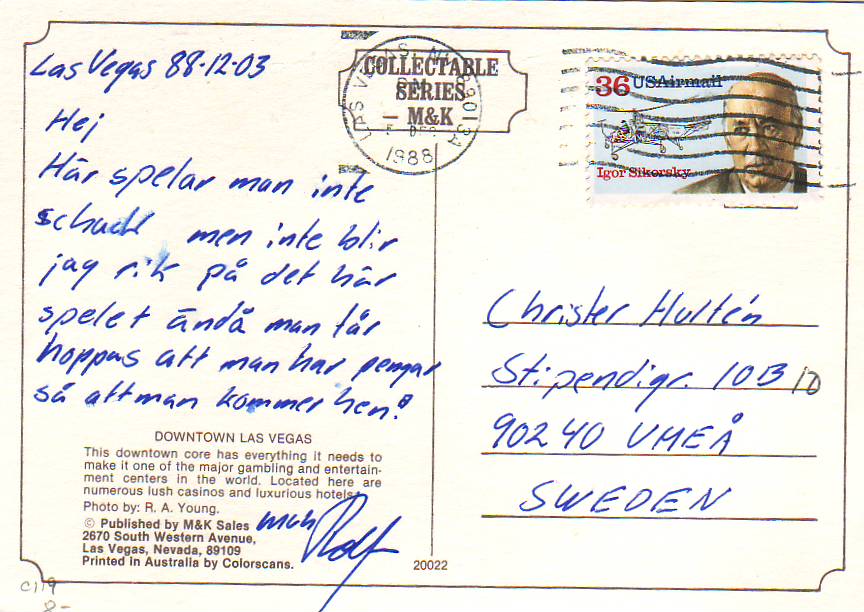 Las Vegas 88-12-03
Hej
Här spelar man inte
schack men inte blir
jag rik på det här
spelet ändå man får
hoppas att man har pengar
så att man kommer hem!
mvh Rolf
COLLECTABLE
SERIES
M&K
LAS VEGAS, NV 89013A
PM
5 DEC
1988
36 USAirmail
Igor Sikorsky
Christer Hultén
Stipendigr. 10B 10
90240 UMEÅ
SWEDEN
DOWNTOWN LAS VEGAS
This downtown core has everything it needs to
make it one of the major gambling and entertain-
ment centers in the world. Located here are
numerous lush casinos and luxurious hotels.
Photo by: R. A. Young.
© Published by M&K Sales
2670 South Western Avenue,
Las Vegas, Nevada, 89109
Printed in Australia by Colorscans.
20022
C119
8-